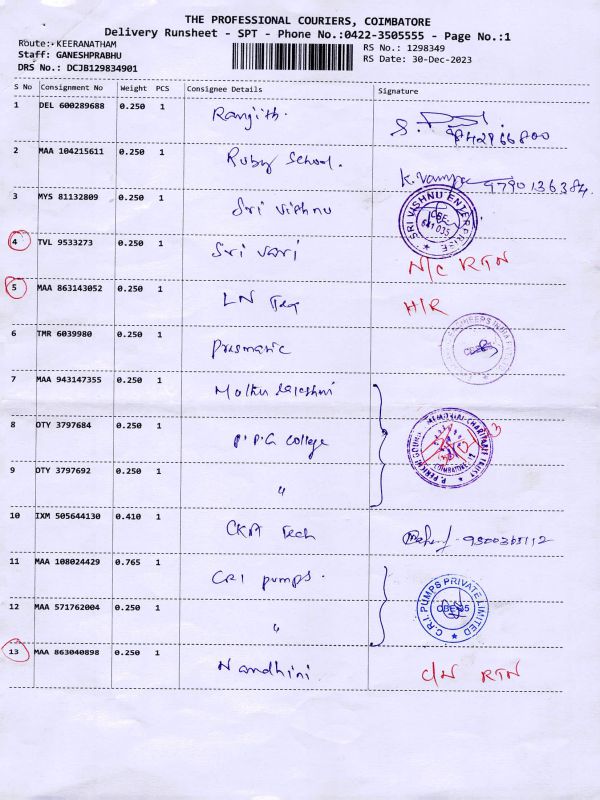 THE PROFESSIONAL COURIERS, COIMBATORE
Delivery Runsheet - SPT - Phone No.:0422-3505555 - Page No.:1
Route: KEERANATHAM
Staff: GANESHPRABHU
DRS No.: DCJB129834901
RS No.: 1298349
RS Date: 30-Dec-2023
S No Consignment No Weight PCS Consignee Details Signature
1 DEL 600289688 0.250 1 Ranjith.
2 MAA 104215611 0.250 1 Ruby School. 9790136384
3 MYS 81132809 0.250 1 Sri vishnu SRI VISHNU ENTERPRISE CBE 641 035
4 TVL 9533273 0.250 1 Sri vari N/C RTN
5 MAA 863143052 0.250 1 LN H/R
6 TMR 6039980 0.250 1 Prismatic
7 MAA 943147355 0.250 1
8 OTY 3797684 0.250 1 P.P.G College
9 OTY 3797692 0.250 1 "
10 IXM 505644130 0.410 1 Tech
11 MAA 108024429 0.765 1 CRI pumps. C.R.I. PUMPS PRIVATE LIMITED CBE-35
12 MAA 571762004 0.250 1 "
13 MAA 863040898 0.250 1 Nandhini. C/N RTN